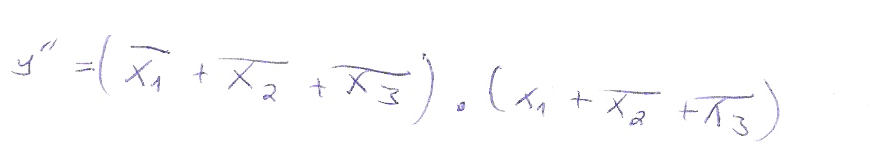 y'' = (x̅₁ + x̅₂ + x̅₃) . (x₁ + x̅₂ + x̅₃)